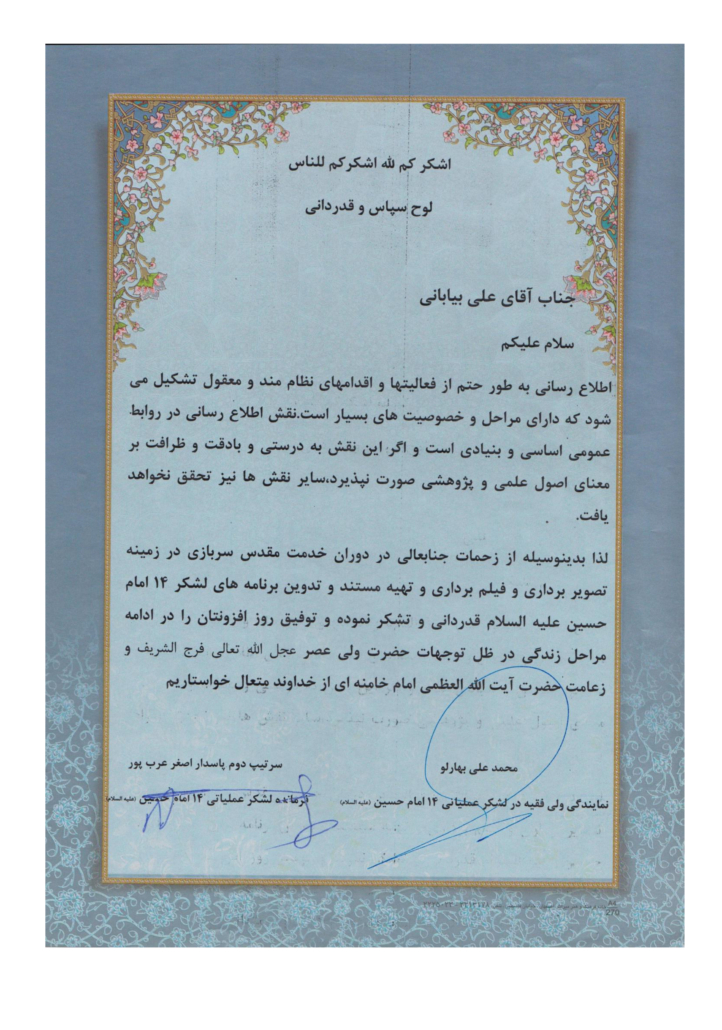 اشکر کم لله اشکرکم للناس
لوح سپاس و قدردانی
جناب آقای علی بیابانی
سلام علیکم
اطلاع رسانی به طور حتم از فعالیتها و اقدامهای نظام مند و معقول تشکیل می
شود که دارای مراحل و خصوصیت های بسیار است.نقش اطلاع رسانی در روابط
عمومی اساسی و بنیادی است و اگر این نقش به درستی و بادقت و ظرافت بر
معنای اصول علمی و پژوهشی صورت نپذیرد،سایر نقش ها نیز تحقق نخواهد
یافت.
لذا بدینوسیله از زحمات جنابعالی در دوران خدمت مقدس سربازی در زمینه
تصویر برداری و فیلم برداری و تهیه مستند و تدوین برنامه های لشکر ۱۴ امام
حسین علیه السلام قدردانی و تشکر نموده و توفیق روز افزونتان را در ادامه
مراحل زندگی در ظل توجهات حضرت ولی عصر عجل الله تعالی فرج الشریف و
زعامت حضرت آیت الله العظمی امام خامنه ای از خداوند متعال خواستاریم
محمد علی بهارلو
نمایندگی ولی فقیه در لشکر عملیاتی ۱۴ امام حسین (علیه السلام)
سرتیپ دوم پاسدار اصغر عرب پور
فرمانده لشکر عملیاتی ۱۴ امام حسین (علیه السلام)
270